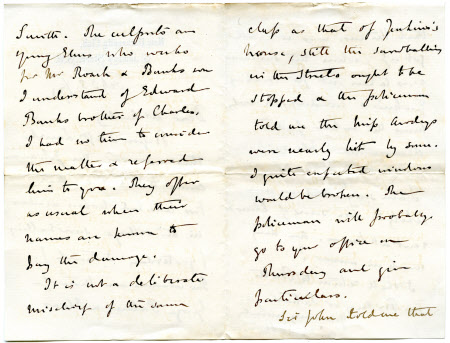 Smith. The culprits are
young Elms who works
for Mr Roach & Banks son
I understand of Edward
Banks brother of Charles.
I had no time to consider
the matter & referred
him to you. They offer
as usual when their
names are known to
pay the damage.
It is not a deliberate
mischief of the same
class as that of Jenkins's
house, still the snowballing
in the streets ought to be
stopped & the policeman
told me the Miss
were nearly hit by some.
I quite expected windows
would be broken. The
policeman will probably
go to your office on
Thursday and give
particulars.
Sir John told me that